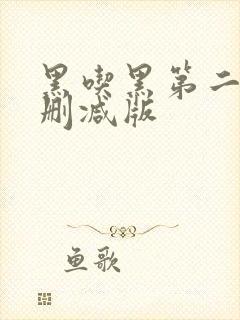 黑喫黑第二
删减版
鱼歌